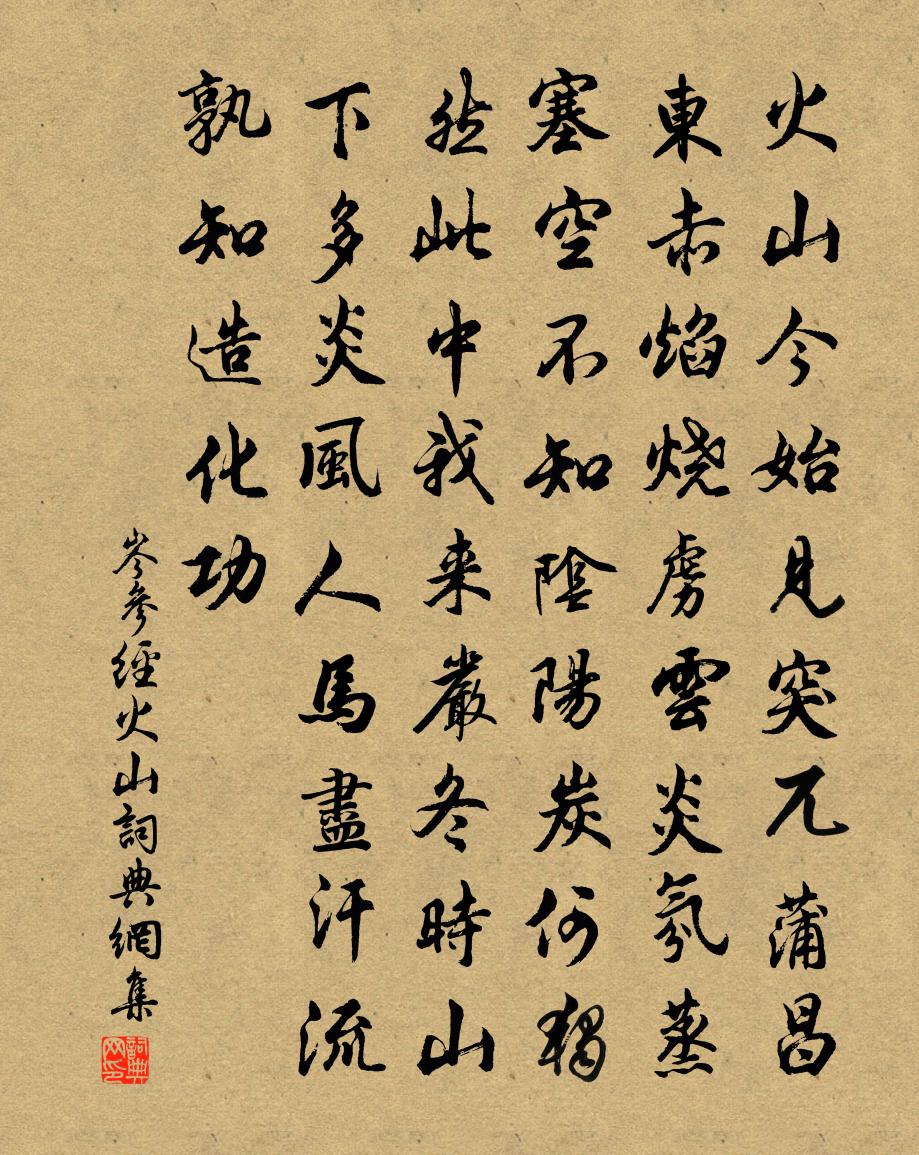 火山今始見突兀蒲昌
東赤焰燒虜雲炎氛蒸
塞空不知陰陽炭何獨
然此中我来嚴冬時山
下多炎風人馬盡汗流
孰知造化功
岑參經火山詞典網集
詞典网印